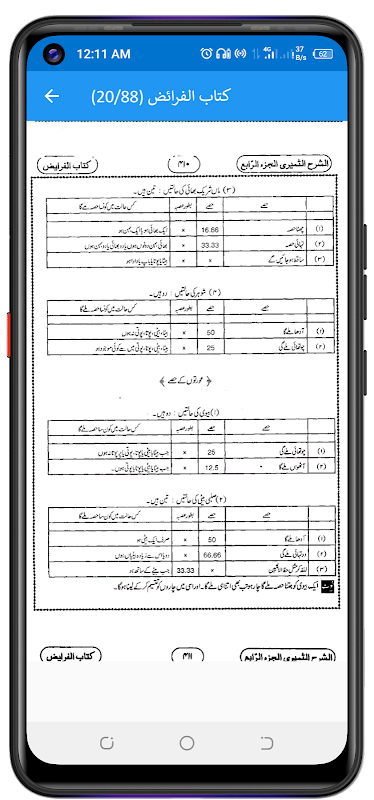 12:11 AM 4G 37 B/s 62
کتاب الفرائض (20/88)
الشرح الثميرى الجزء الرّابع ۴۱۰ کتاب الفرایض
(۳) ماں شریک بھائی کی حالتیں : تین ہیں۔
حصے حصے بطور عصبہ کس حالت میں کونسا حصہ ملے گا
(۱) چھٹا حصہ 16.66 × ایک بھائی ہو یا ایک بہن ہو
(۲) تہائی حصہ 33.33 × بھائی بہن دونوں ہوں یا دو بھائی یا دو بہن ہوں
(۳) ساقط ہو جائیں گے × بیٹا یا پوتا یا باپ یا دادا ہو
(۴) شوہر کی حالتیں : دو ہیں۔
حصے حصے بطور عصبہ کس حالت میں کونسا حصہ ملے گا
(۱) آدھا ملے گا 50 × بیٹا، بیٹی، پوتا، پوتی نہ ہوں
(۲) چوتھائی ملے گی 25 × بیٹا، بیٹی، پوتا، پوتی میں سے کوئی موجود ہو
﴿ عورتوں کے حصے ﴾
(۱) بیوی کی حالتیں : دو ہیں۔
حصے حصے بطور عصبہ کس حالت میں کون سا حصہ ملے گا
(۱) چوتھائی ملے گی 25 × جب بیٹا یا بیٹی یا پوتا، پوتی یا پرپوتا نہ ہوں
(۲) آٹھواں ملے گی 12.5 × جب بیٹا یا بیٹی یا پوتا یا پوتی ہوں۔
(۲) صلبی بیٹی کی حالتیں : تین ہیں۔
حصے حصے بطور عصبہ کس حالت میں کون سا حصہ ملے گا
(۱) آدھا ملے گا 50 × صرف ایک بیٹی ہو
(۲) دو تہائی ملے گی 66.66 × دو یا اس سے زیادہ بیٹیاں ہوں
(۳) للذکر مثل حظ الانثیین × 33.33 جب بیٹے کے ساتھ ہو
نوٹ ایک بیوی کو جتنا حصہ ملے گا چار ہو تب بھی اتنا ہی ملے گا۔ اور اسی میں چاروں کو تقسیم کر کے لینا ہوگا۔
الشرح الثميرى الجزء الرّابع ۴۱۱ کتاب الفرایض